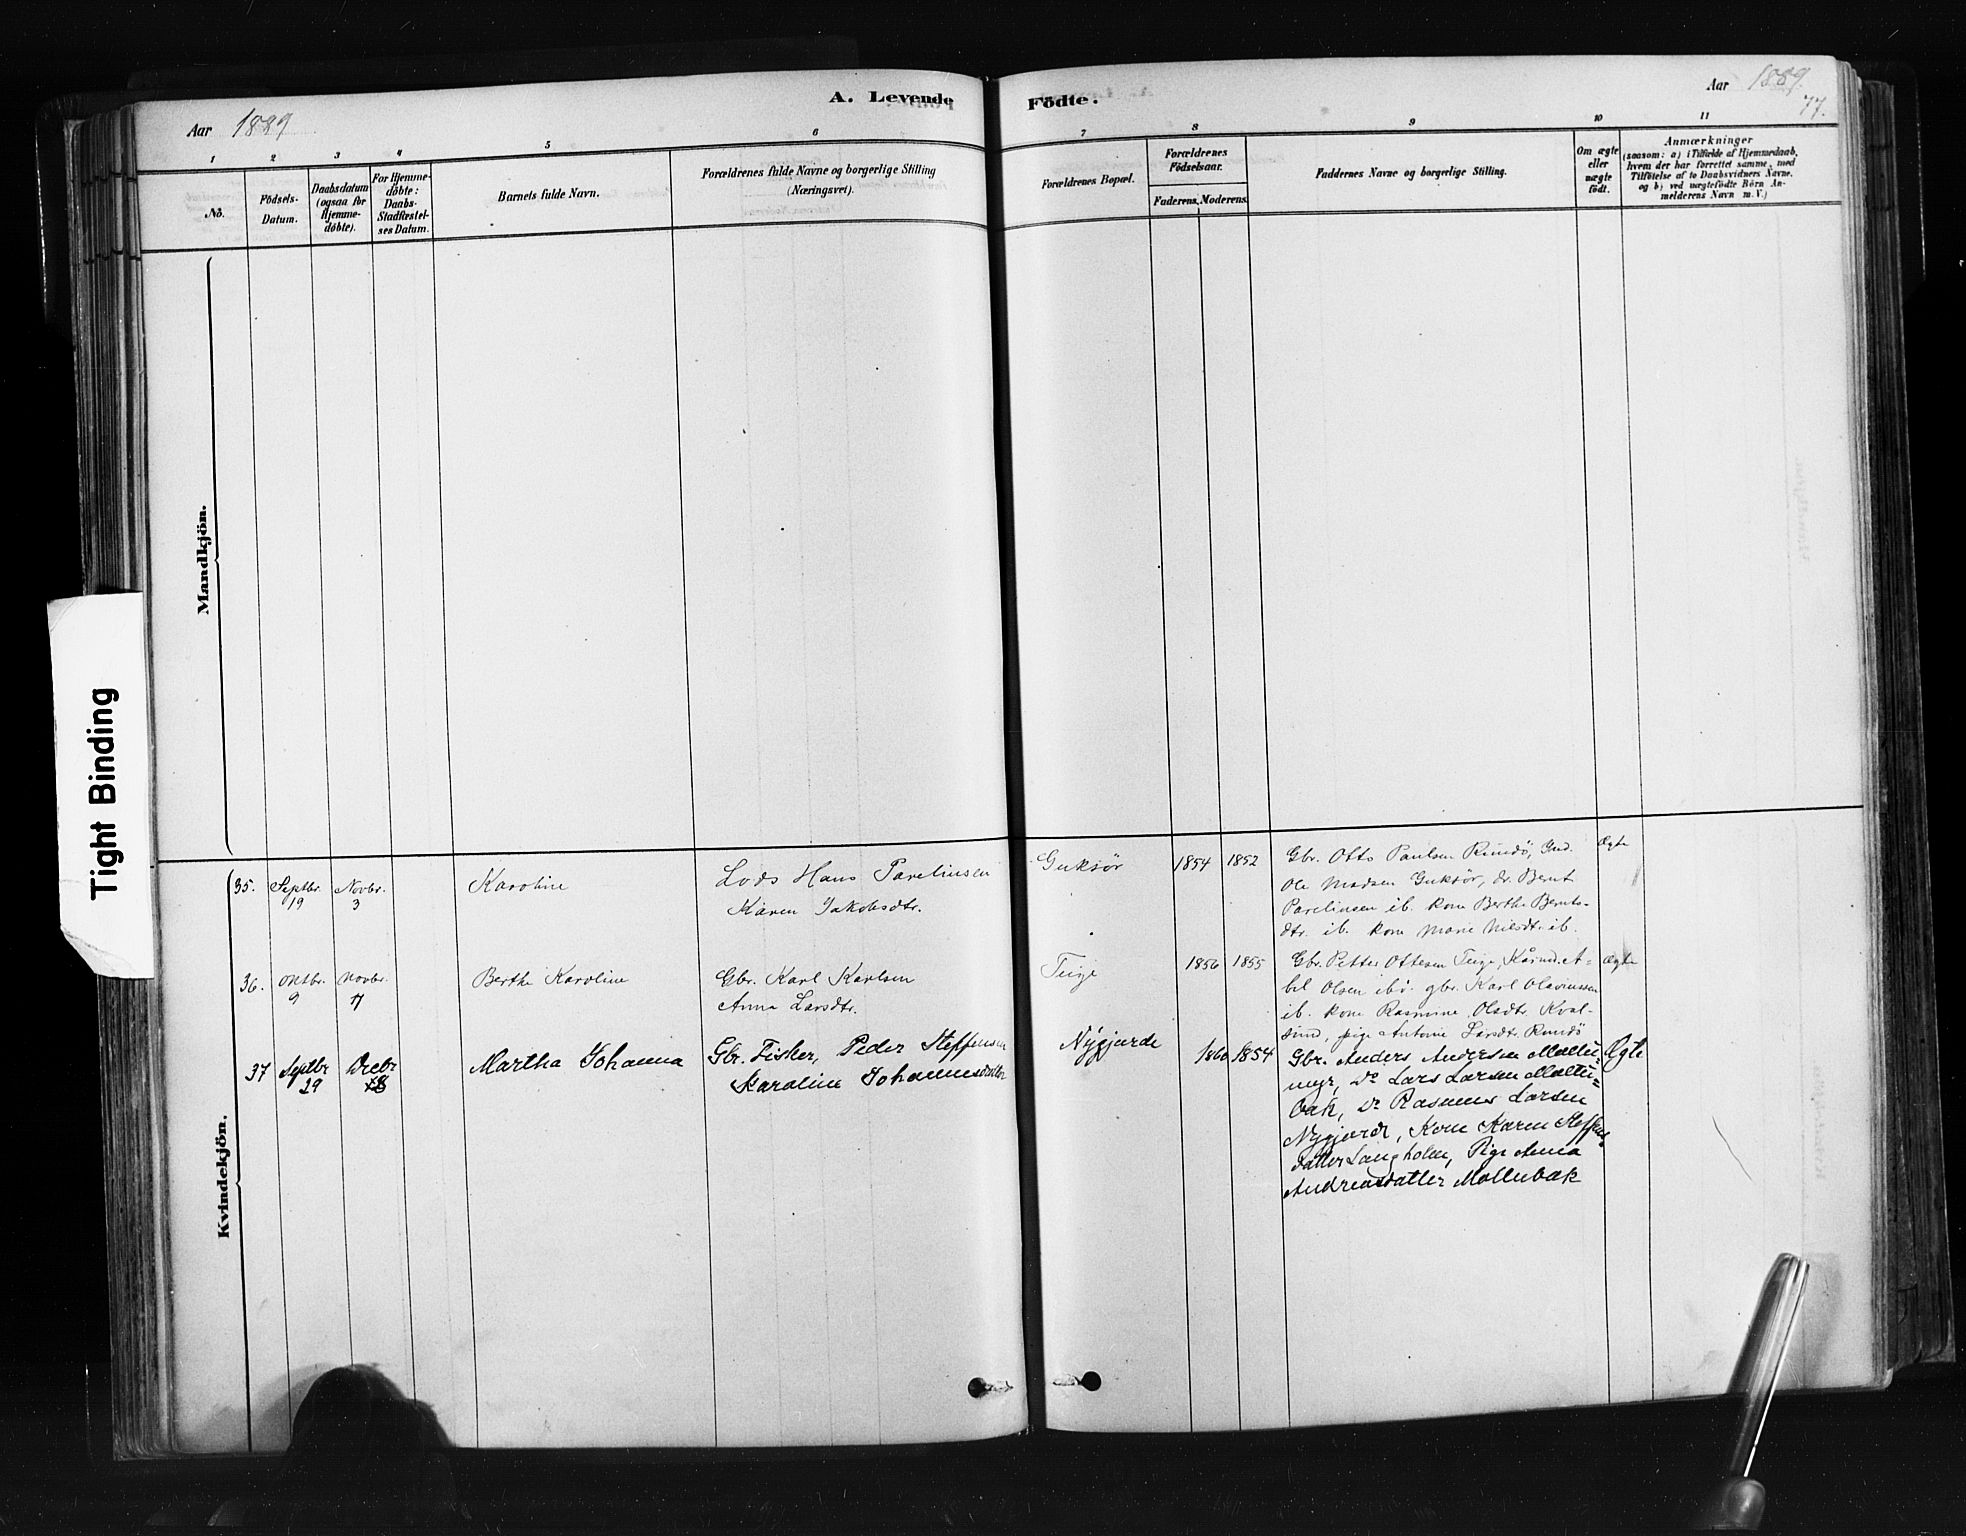 A. Levende Födte.
Aar 1889
Aar 1889.
77.
1 2 3 4 5 6 7 8 9 10 11
No.
Födsels-
Datum.
Daabsdatum
(ogsaa for
Hjemme-
døbte).
For Hjemme-
døbte:
Daabs-
Stadfæstel-
ses Datum.
Barnets fulde Navn.
Forældrenes fulde Navne og borgerlige Stilling
(Næringsvei).
Forældrenes Bopæl.
Forældrenes
Fødselsaar.
Faderens. Moderens.
Faddernes Navne og borgerlige Stilling.
Om ægte
eller
uægte
født.
Anmærkninger
(saasom: a) i Tilfælde af Hjemmedaab,
hvem der har forrettet samme, med
Tilföielse af to Daabsvidners Navne.
og b) ved uægtefödte Börn An-
melderens Navn m.V.)
Mandkjön.
Kvindekjön.
Tight Binding
35. Septbr. 19 Novbr. 3
Karoline
Lods Hans Parelinsen
Karen Jakobsdtr.
Guksör
1854 1852
Gbr. Otto Paulsen Rundö,
Ole Madsen Guksör, dr. Bernt
Parelinsen ib. kone Berthe Bernts-
dtr. ib. kone Marie Nilsdt. ib.
Ægte
36. Oktbr. 9 Novbr. 17
Berthe Karoline
Gbr. Karl Karlsen
Anna Larsdtr.
Teige
1856 1855
Gbr. Petter Ottesen Teige, Kårmd. A-
bel Olsen ibd. gbr. Karl Olavinssen
ib. kone Rasmine Olsdtr. Kval-
sund, pige Antonie Larsdtr. Rundö
ægte
37 Septbr 29 Decbr
Martha Johanna
Gbr. Fisker, Peder Steffensen
Karoline Johannesdatter
Nygjærde
1860 1854
Gbr. Anders Andersen Moltu-
myr, Do Lars Larsen Moltu-
bak, Do Rasmus Larsen
Nygjærde, Kone Karen Steffens-
datter Langholm, Pige Anna
Andreasdatter Moltubak
Ægte